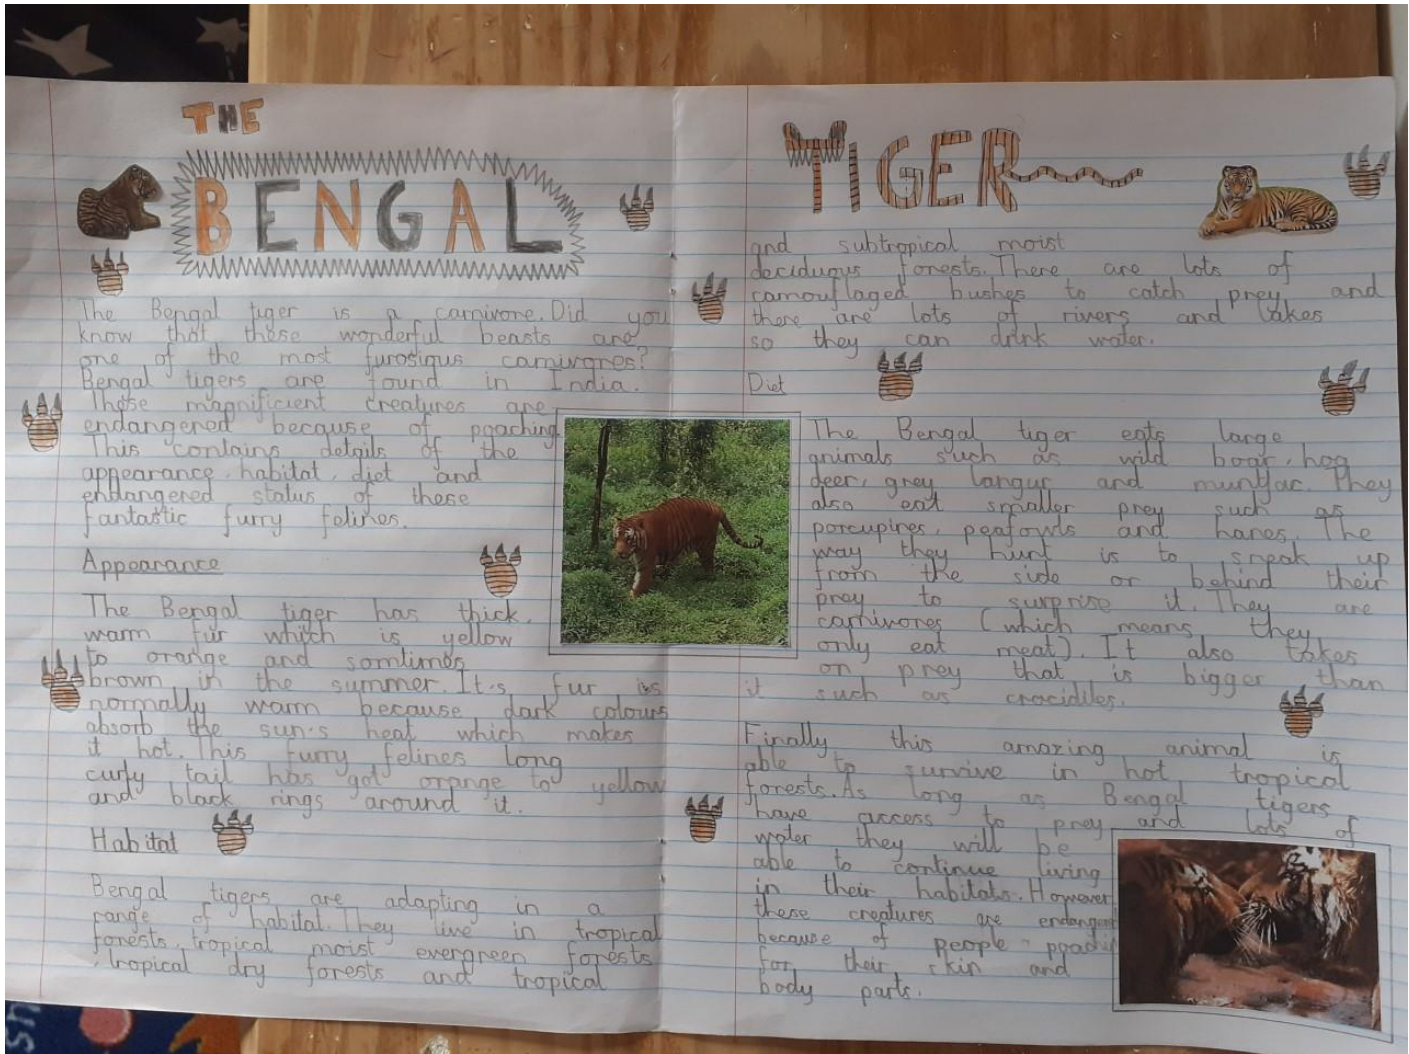 THE
BENGAL
The Bengal tiger is a carnivore. Did you
know that these wonderful beasts are
one of the most furosious carnivores?
Bengal tigers are found in India.
These magnificient creatures are
endangered because of poaching
This contains details of the
appearance, habitat, diet and
endangered status of these
fantastic furry felines.
Appearance
The Bengal tiger has thick,
warm fur which is yellow
to orange and somtimes
brown in the summer. It's fur is
normally warm because dark colours
absorb the sun's heat which makes
it hot. This furry felines long
curly tail has got orange to yellow
and black rings around it.
Habitat
Bengal tigers are adapting in a
range of habitat. They live in tropical
forests, tropical moist evergreen forests
, tropical dry forests and tropical
TIGER
and subtropical moist
deciduous forests. There are lots of
camouflaged bushes to catch prey and
there are lots of rivers and lakes
so they can drink water.
Diet
The Bengal tiger eats large
animals such as wild boar, hog
deer, grey langur and muntjac. They
also eat smaller prey such as
porcupines, peafowls and hares. The
way they hunt is to sneak up
from the side or behind their
prey to surprise it. They are
carnivores (which means they
only eat meat). It also takes
on prey that is bigger than
it such as crocidiles.
Finally this amazing animal is
able to survive in hot tropical
forests. As long as Bengal tigers
have access to prey and lots of
water they will be
able to continue living
in their habitats. However
these creatures are
because of people
for their skin and
body parts.